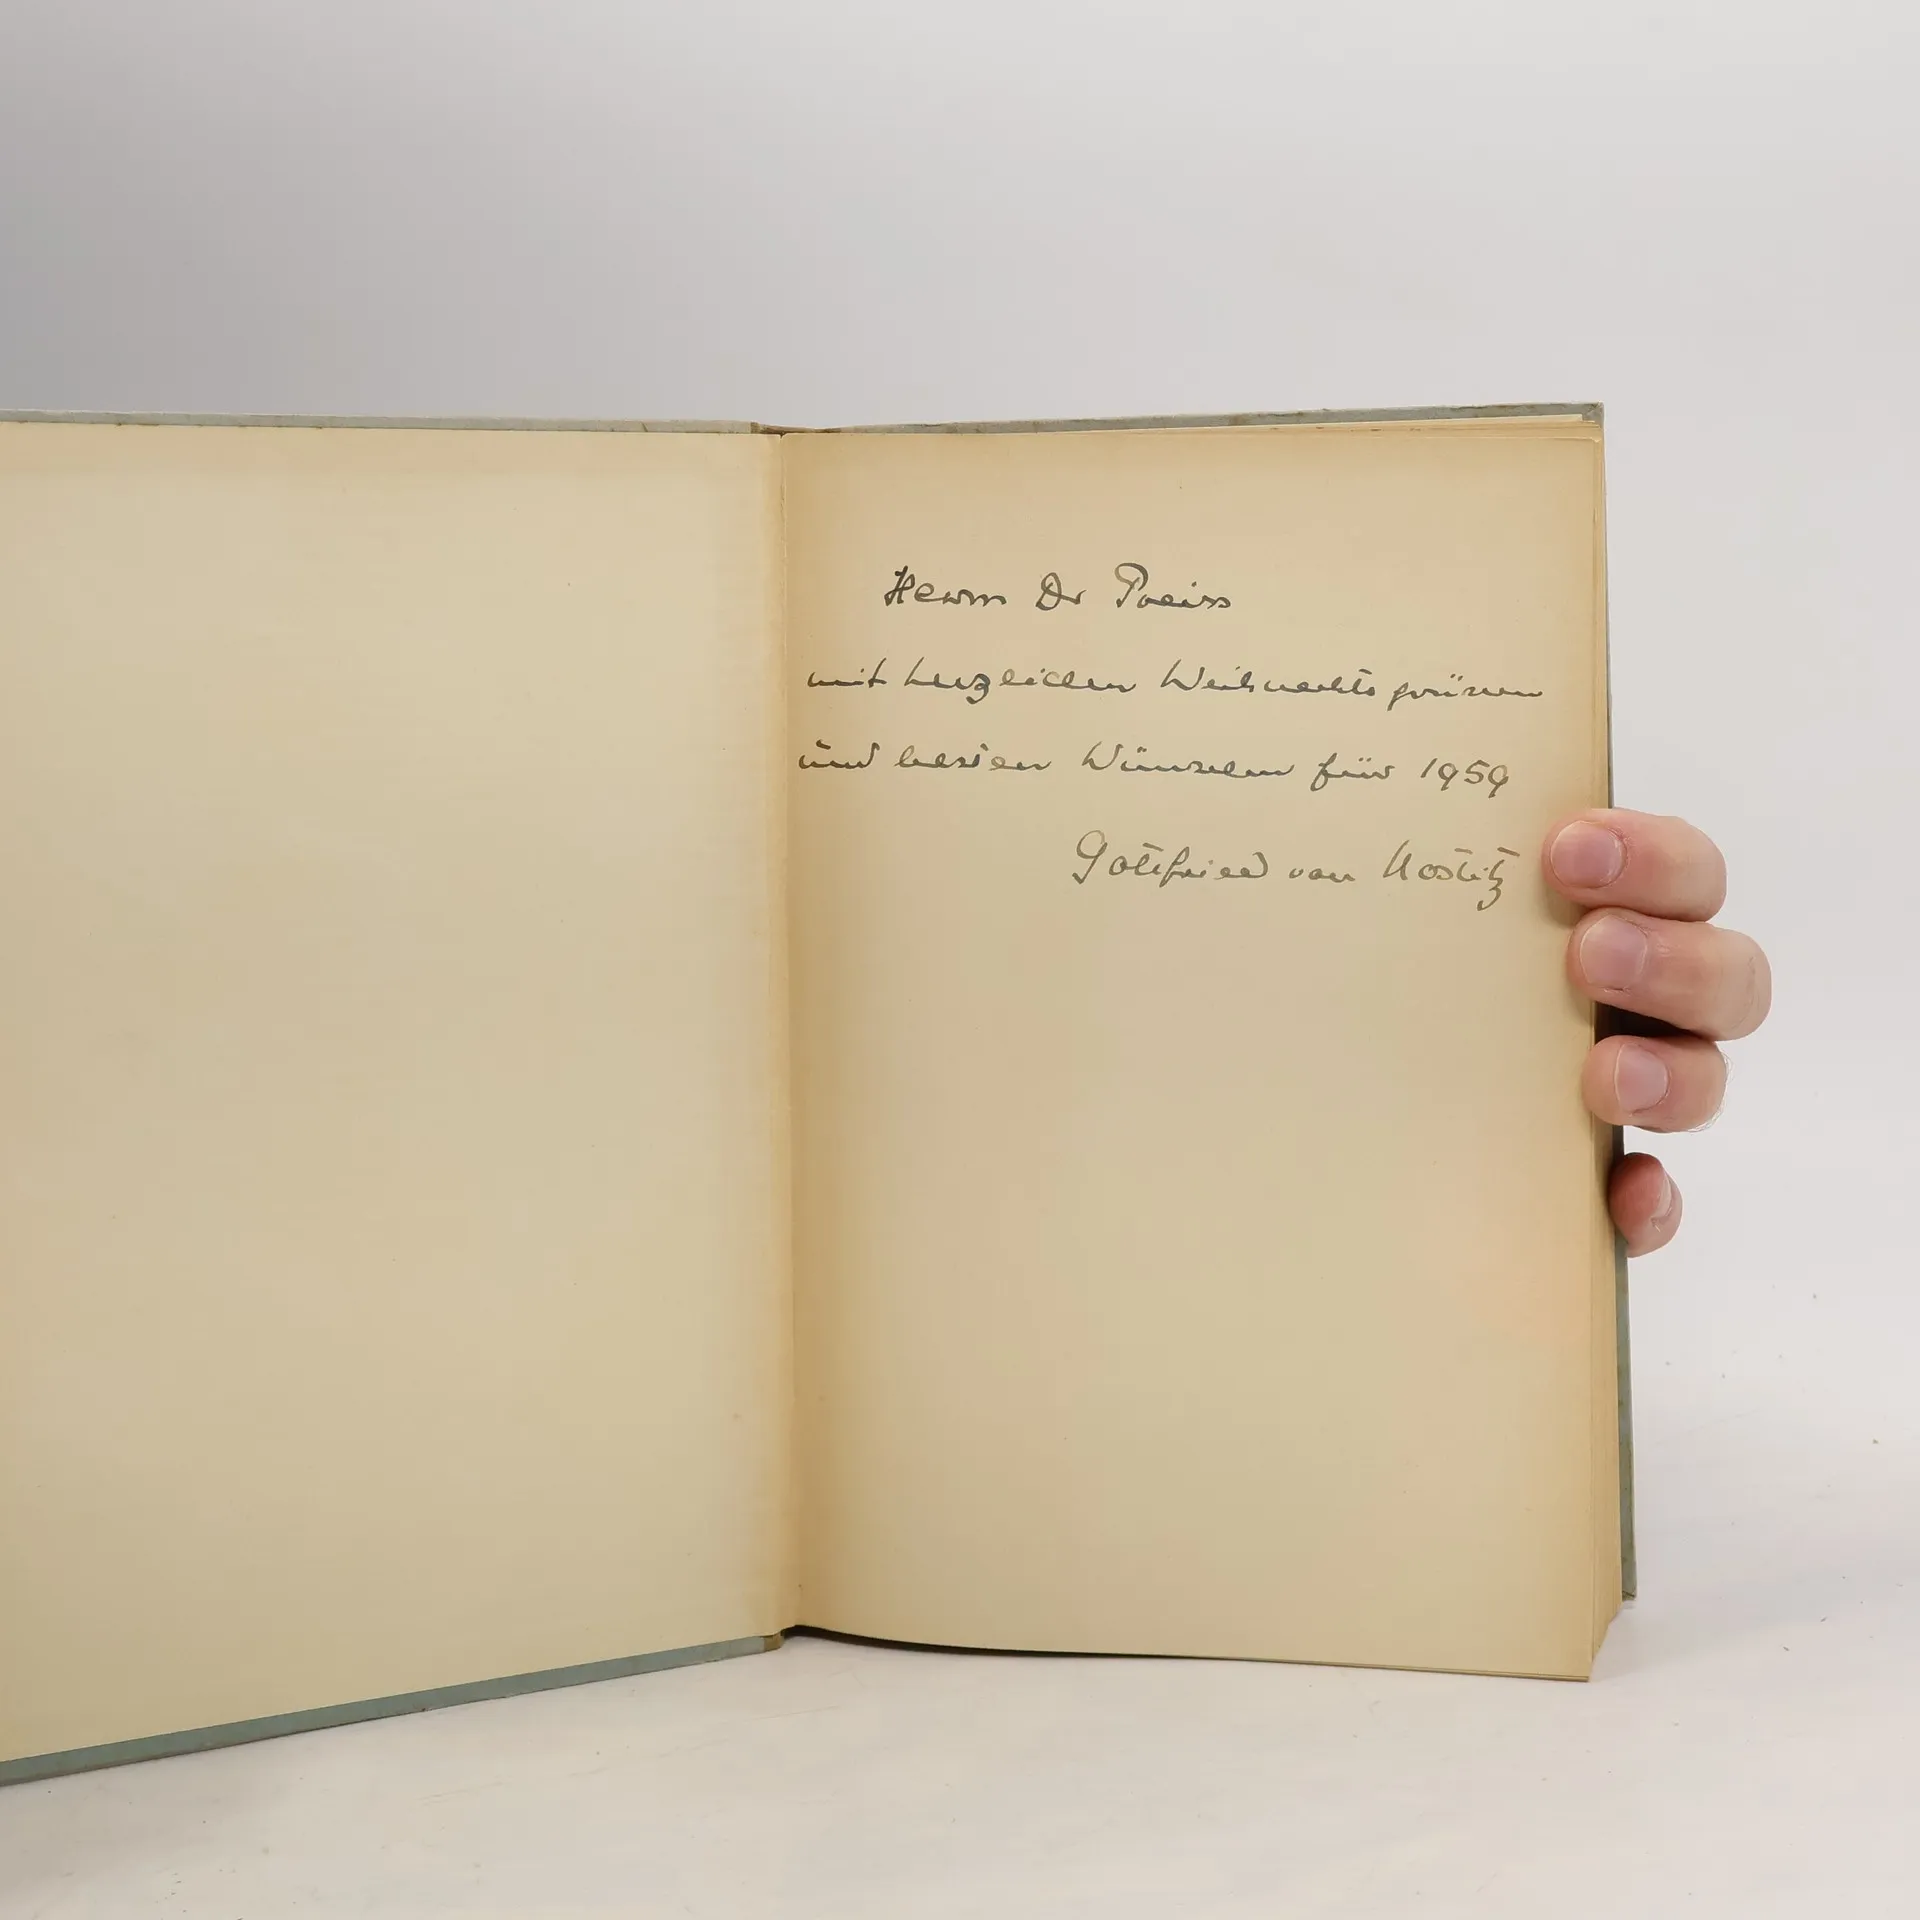 Herrn Dr Preiss
mit herzlichen Weihnachtsgrüssen
und besten Wünschen für 1959
Gottfried von Nostitz